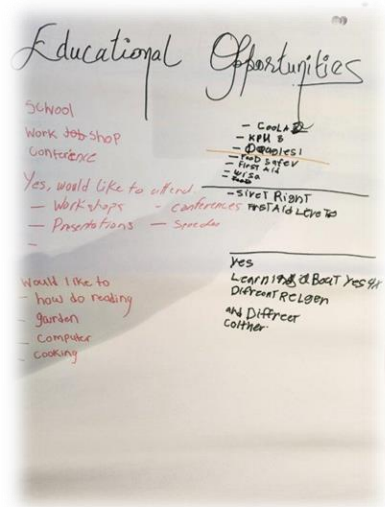 Educational Opportunities
School
Work Shop
Conference
Yes, would like to attend
— Workshops - conferences
— Presentations — Speeches
—
Would like to
- how do reading
- garden
- computer
- cooking
— KPU B
— Food Safey
— First Aid
— wisa
— Sivet Right
First Aid Level
Yes
Learning aBout
Difreent Relgen
and Diffreer
Colther